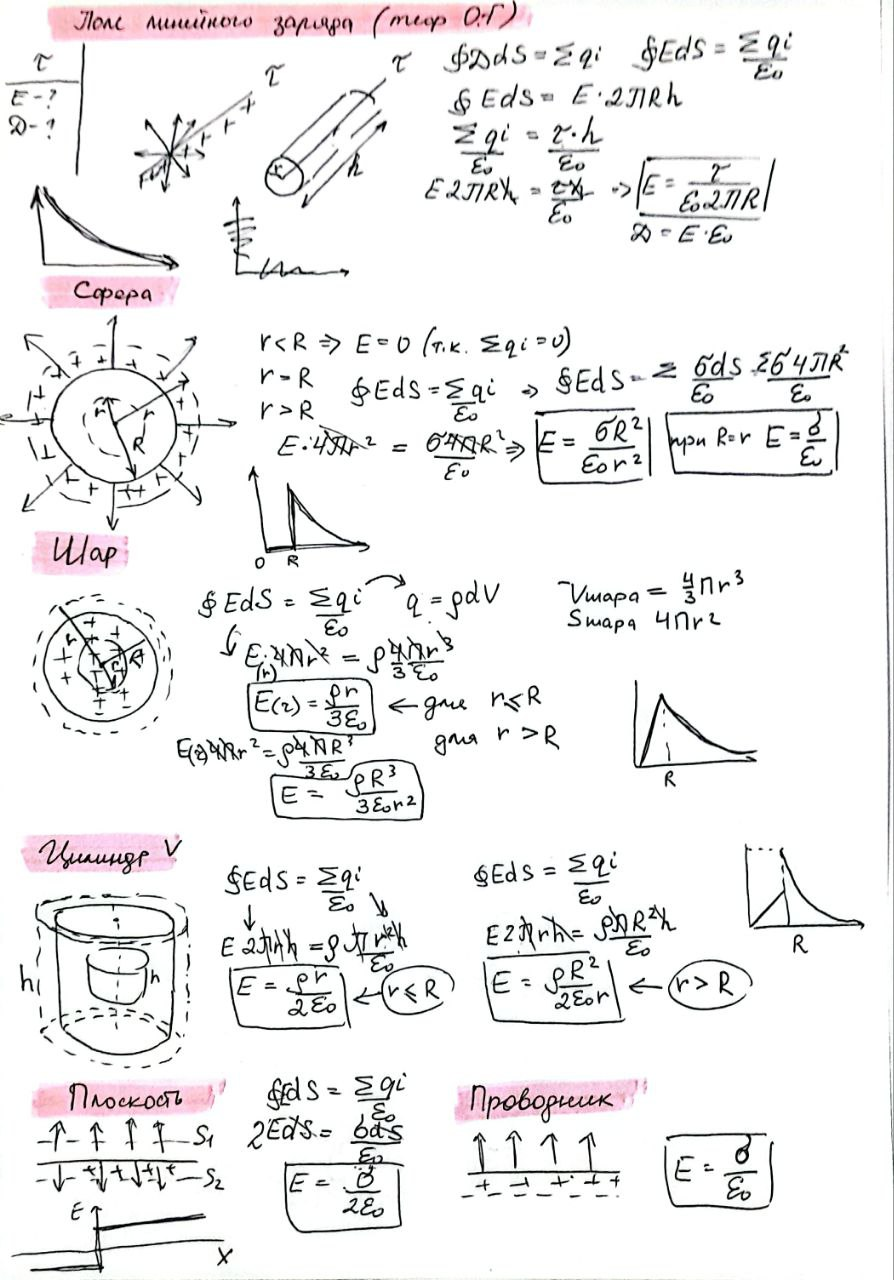 Поле линейного заряда (теор О.-Г)
τ
E - ?
D - ?
τ
τ
r
h
∮DdS = Σqi ∮EdS = Σqi/ε₀
∮EdS = E·2πRh
Σqi/ε₀ = τ·h/ε₀
E2πRh = τh/ε₀ => E = τ/ε₀2πR
D = E·ε₀
Сфера
r r R
r < R => E = 0 (т.к. Σqi = 0)
r = R
r > R
∮EdS = Σqi/ε₀ => ∮EdS = Σ σdS/ε₀ Σσ4πR²/ε₀
E·4πr² = σ4πR²/ε₀ => E = σR²/ε₀r² при R=r E = σ/ε₀
O R
Шар
r r R
∮EdS = Σqi/ε₀ q = ρdV
Vшара = 4/3πr³
Sшара 4πr²
E(r)·4πr² = ρ4/3πr³/ε₀
E(r) = ρr/3ε₀ ← для r ≤ R
для r > R
E(r)4πr² = ρ4πR³/3ε₀
E = ρR³/3ε₀r²
R
Цилиндр V
h h
∮EdS = Σqi/ε₀
E2πrh = ρπr²h/ε₀
E = ρr/2ε₀ ← r ≤ R
∮EdS = Σqi/ε₀
E2πrh = ρπR²h/ε₀
E = ρR²/2ε₀r ← r > R
R
Плоскость
S₁
S₂
E
X
∮EdS = Σqi/ε₀
2EdS = σdS/ε₀
E = σ/2ε₀
Проводник
E = σ/ε₀